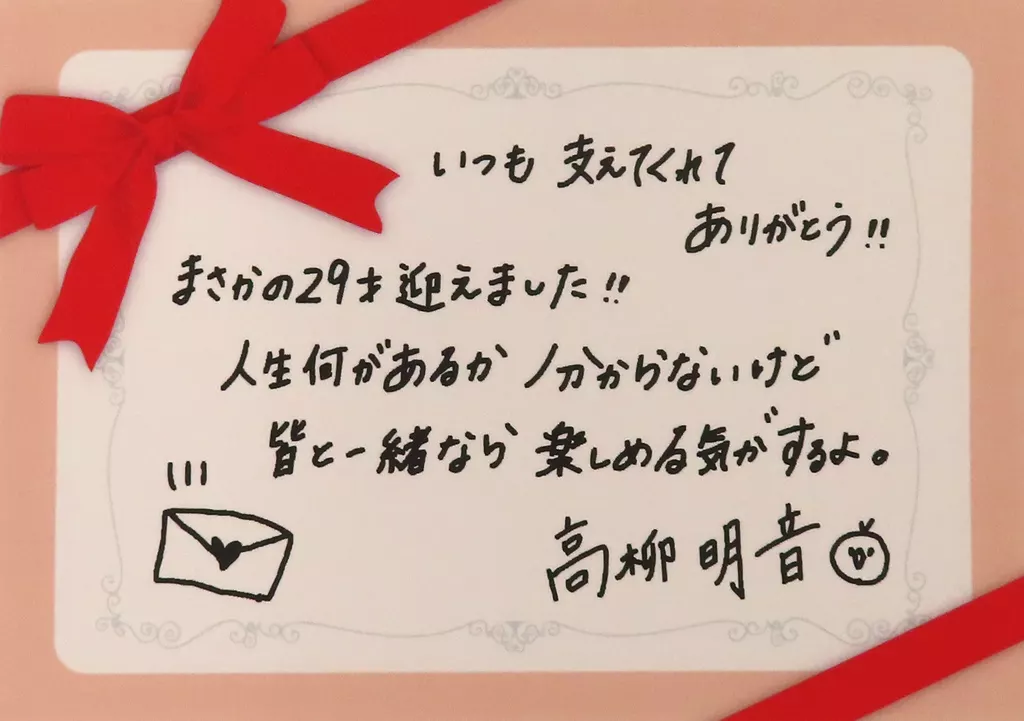 いつも 支えてくれて
ありがとう!!
まさかの29才 迎えました!!
人生何があるか 分からないけど
皆と一緒なら 楽しめる気がするよ。
高柳 明音